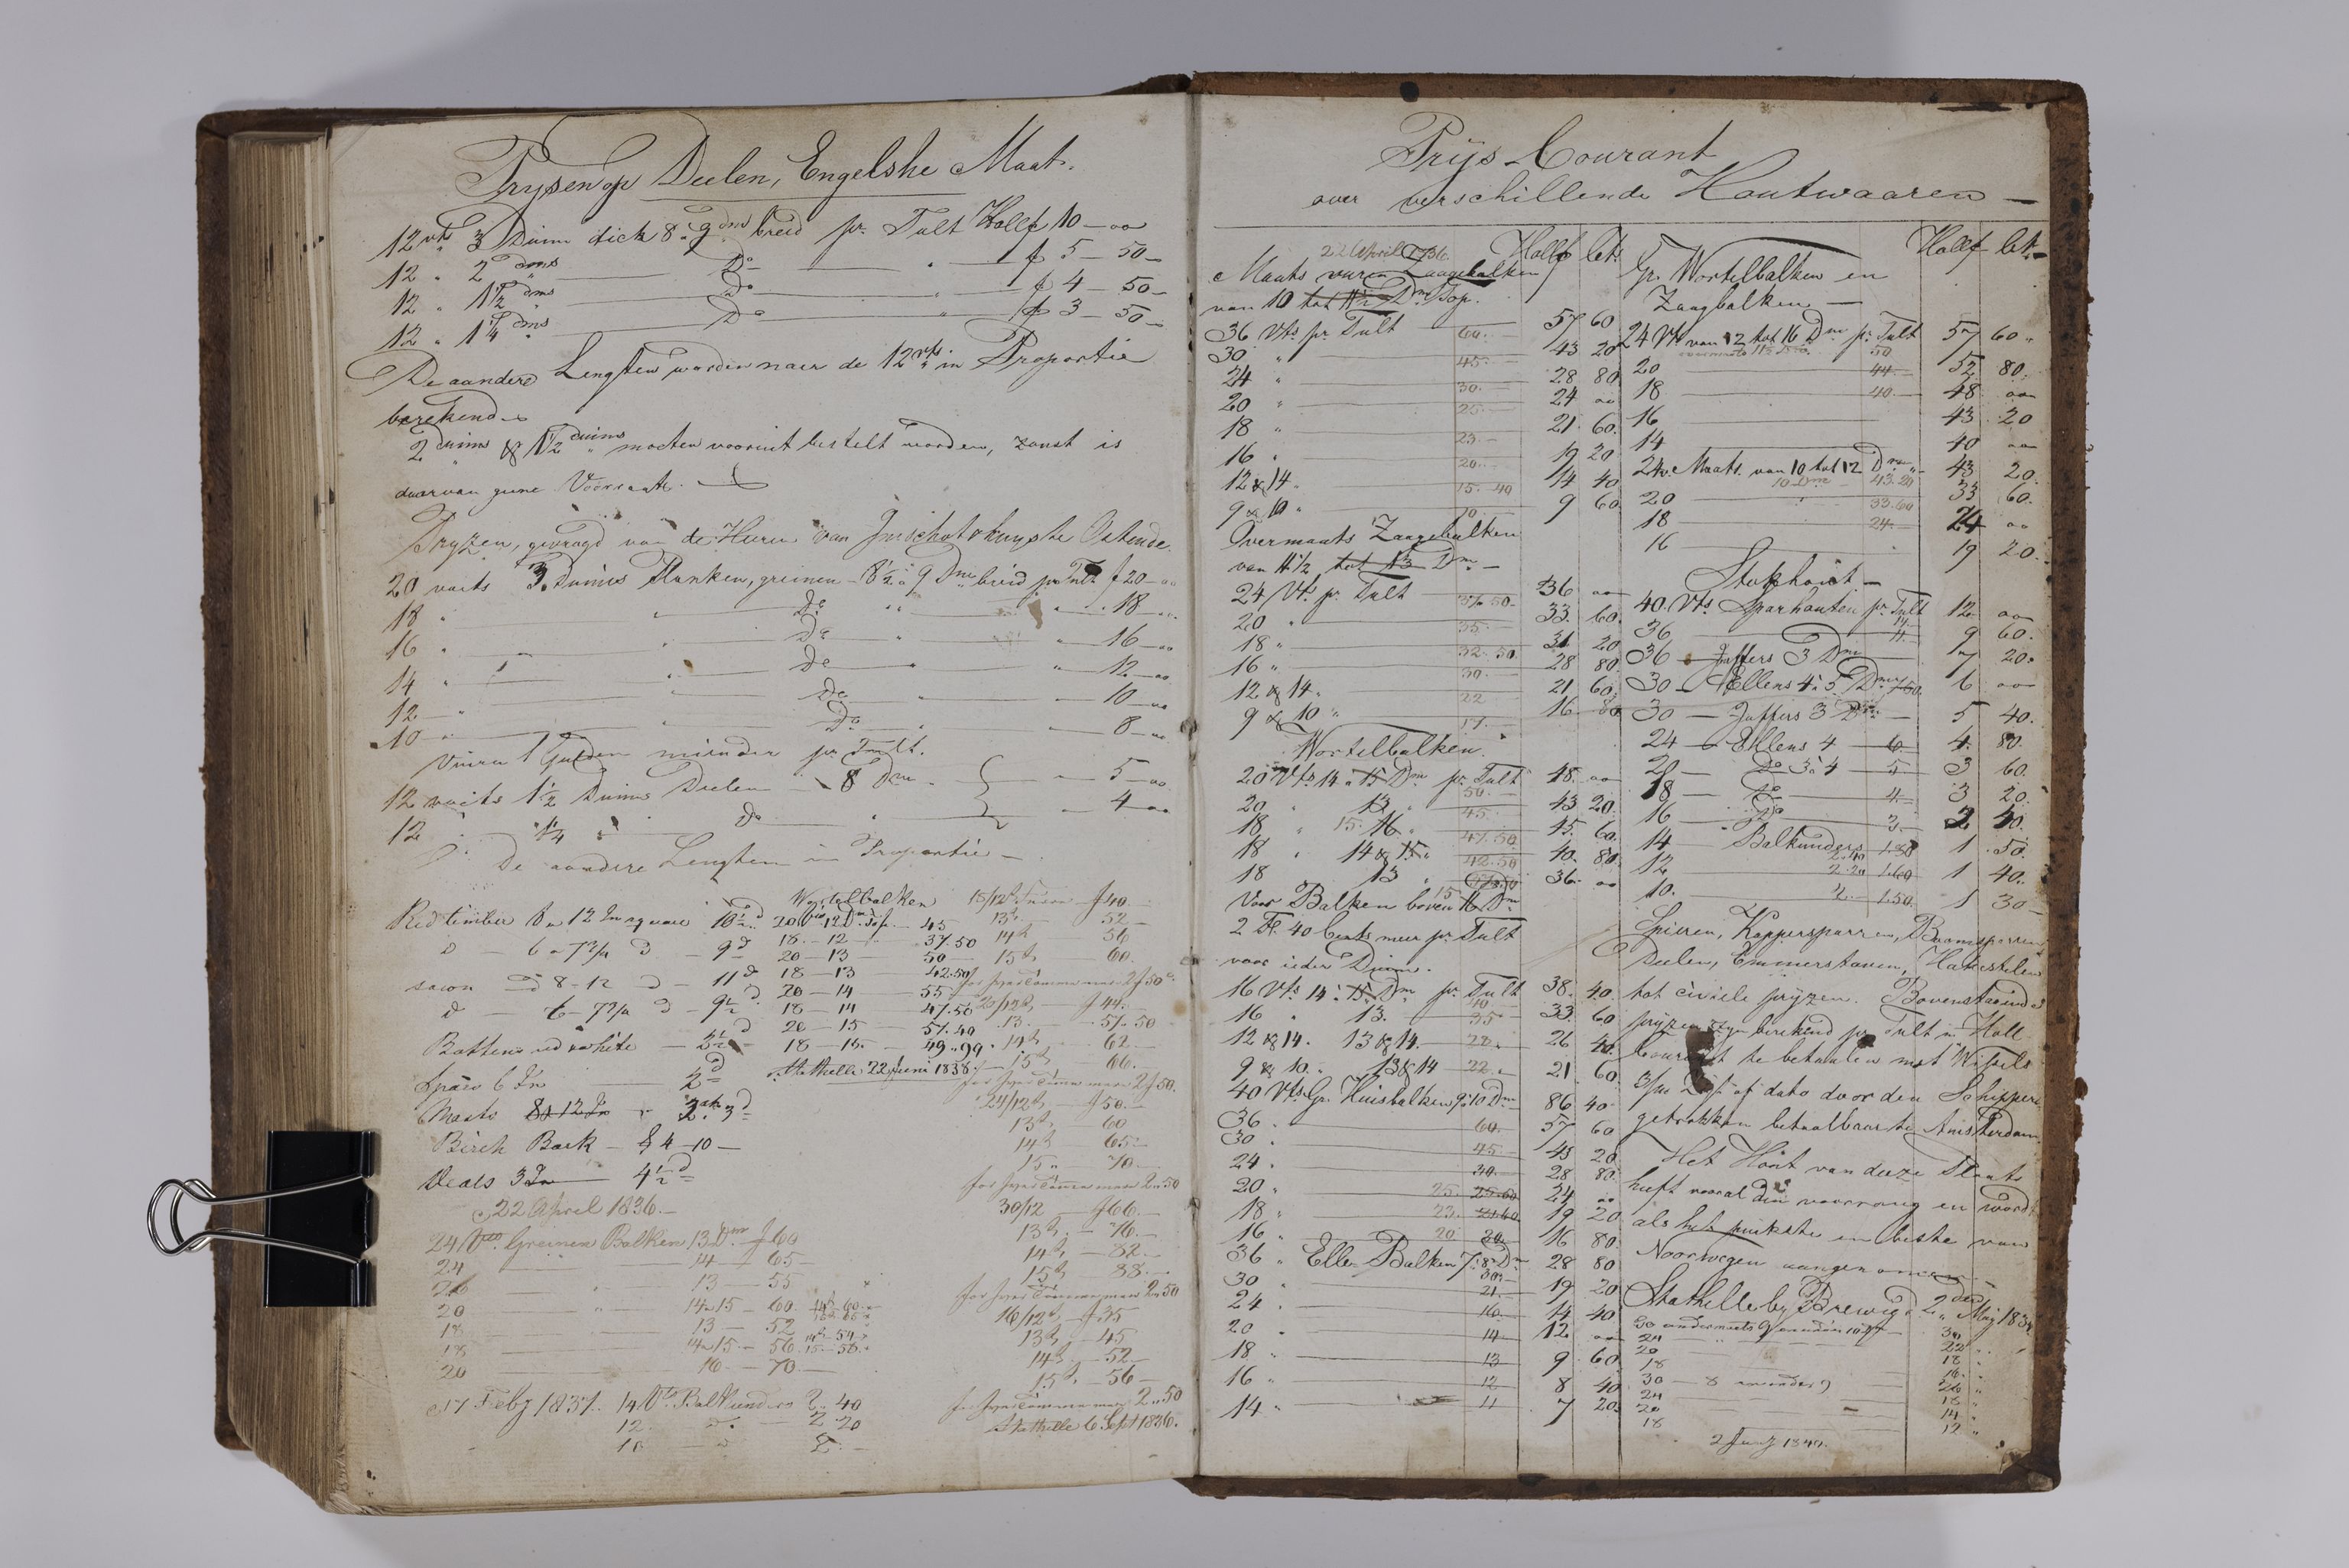 Prysen op Deelen, Engelshe Maat.
12 vts 3 Duim dick 8 a 9 dms breid pr. Tult Hollf 10 — oo
12 " 2 dms " — Do — " — f 5 — 50 —
12 " 1½ dms " — Do — " — f 4 — 50 —
12 " 1¼ dms — Do — " — f 3 — 50 —
De aandere Lengten worden naer de 12 vts in Proportie
berekend
2 duims & 1½ duims moeten vooruit bestelt worden, zonst is
daarvan geene Voorraat.
Pryzen, gevraagd van de Heeren van Ostende
20 voets 3 Duims Planken, greinen — 8½ a 9 Dm breid pr Tult f 20 — oo
18 " " Do " " 18 — oo
16 " " Do " " 16 — oo
14 " " Do " " 12 — oo
12 " " Do " 10 — oo
10 " " Do " 8 — oo
Vuren 1 Gulden minder pr Tult.
12 voets 1½ Duims Deelen — 8 Dm — 5 — oo
12 " 1¼ " — do — 4 — oo
De aandere Lengten in Proportie —
Wortelbalken
Redtimber 8 a 12 In square 10½ d
d — 6 a 7¾ d — 9 d
sawn d 8 - 12 d — 11 d
d — 6 - 7¾ d — 9½ d
Battens red & white — 3½ d
Spars 6 In — 2 d
Masts 8 a 12 In
Birch Bark — 4 — 10 —
Deals 3 In — 4½ d
20 vts 12 Dm Top — 45
18 — 12 — 37.50
20 — 13 — 50
18 — 13 — 42.50
20 — 14 — 55
18 — 14 — 47.50
20 — 15 — 57.40
18 — 15 — 49.99
Stathelle 22 Juni 1838.
22 April 1836. —
24 Vts Greinen Balken 13 Dm f 60
24 — 14 — f 65 —
20 — 13 — 55
20 — " — 14 a 15 — 60.
18 — 13 — 52
18 — 14 a 15 — 56.
20 — 16 — 70
17 Feby 1837. 14 Vts Balkunders 2. 40
12. — do — 2 20
10 — do — 2. —
f 40.
13 d, 52
14 d 56
15 d, 60.
20/12 d, f 44.
13. 57.50
14 d 62.
15 d 66.
24/12 d, f 50. —
13 d, 60
14 d 65 —
15 " 70.
30/12 — f 66. —
13 d, — 76. —
14 d, — 82. —
15 d — 88. —
2.50
16/12 d, — f 35
13 d, — 45
14 d, — 52 —
15 d, — 56 —
2.50
Stathelle 6 Sept 1836.
Prijs Courant
over verschillende Houtwaaren —
22 April 1836. Hollf Cts.
Maats vuren Zaagebalken
van 10 tot 11½ Dm Top.
36 Vts pr. Tult — 60. — 57 60
30 " — 45. — 43 20
24 " — 30. — 28 80
20 " — 25. — 24 oo
18 " — 23. — 21 60.
16 " — 20. — 19 20
12 & 14 " — 15. 40 14 40
9 & 10 " — 10. — 9 60
Overmaats Zaagebalken
van 11½ tot 13 Dm —
24 Vts. pr. Tult — 37 50 — 36 oo
20 " — 35. — 33. 60.
18 " — 32. 50 31 20
16 " — 30. — 28 80
12 & 14 " — 22 21 60
9 & 10 " — 17. — 16 80
Wortelbalken.
20 Vts 14 a 15 Dm pr. Tult 50. — 48. oo
20 " 13 " 45. — 43 20.
18 " 15. 16 " 47.50 45. 60.
18 " 14 & 15 " 42.50 40. 80.
18 13 " 36. oo
Voor Balken boven 16 Dm
2 Fl. 40 Cents meer pr. Tult
voor ieder Duim.
16 Vts 14 a 15 Dm pr Tult 38. 40.
16 " 13. — 35 — 33. 60
12 & 14. 13 & 14. — 28. 26 40.
9 & 10. " 13 & 14 — 22. 21. 60.
40 Vts. Gr. Huisbalken 9 a 10 Dm — 86 40
36 " — 60. — 57 60
30 " — 45. — 43 20
24 " — 30. — 28 80.
20 " — 25. 25.60 24 oo
18 " — 23. 21.60 19 20
16 " — 20 20. 16 80.
36 " Ellen Balken 7 a 8 Dm 28 80
30 " — 21. — 19 20
24 " — 16. — 14 40
20 " — 14 — 12. oo
18 " — 13 — 9 60
16 " — 12 — 8 40
14 " — 11 — 7 20.
Hollf Ct.
Gr. Wortelbalken en
Zaagbalken —
24 Vts van 12 tot 16 Dm pr Tult 57 60 "
20 — 44. — 52 80.
18 — 40. — 48 oo
16 — 43 20
14 — 40 oo
24 v. Maats. van 10 tot 12 Dm " — 43 20.
10 Dm — 43.20
20 — 33.60 33 60.
18 — 24. — 24 oo
16 — 19 20.
Stokhout —
40. Vts. Sparhouten pr Tult 12. oo
36 — 11. — 9 60.
36 — Juffers 3 Dm — 7 20.
30 — Ellens 4 a 5 Dm 7.50. 6 oo
30 — Juffers 3 Dm — 5 40.
24 — Ellens 4 — 6. 4. 80.
20 — Do 3 a 4 — 5. — 3 60.
18 — Do — 4. — 3 20.
16 — Do — 3. — 2 40.
14 — Balkunders 1.80 1 .50.
12 — 2.20 1.60 1 40.
10. — 2. — 1.50. 1 30 —
Spieren, Kappersparren, Boomsparren
Deelen, Emmerstaven, Hakestelen
tot civiele prijzen. Bovenstaande
prijzen zyn berekend pr Tult in Holl.
Courant te betaalen met Wissels
3/m dato door den Schippers
getrokken betaalbaar te Amsterdam.
Het Hout van deeze Plaats
heeft vooral den voorrang en wordt
als het puikste en beste van
Noorwegen aangenomen. —
Stathelle by Brewig d 2 den May 1834
30 ondermaats 9 — 30 "
24 — 22 "
20 — 18 "
18 — 16. "
30 — 8 — 26 "
24 — 18 "
20 — 14 "
18 — 12 "
2 Juny 1840.